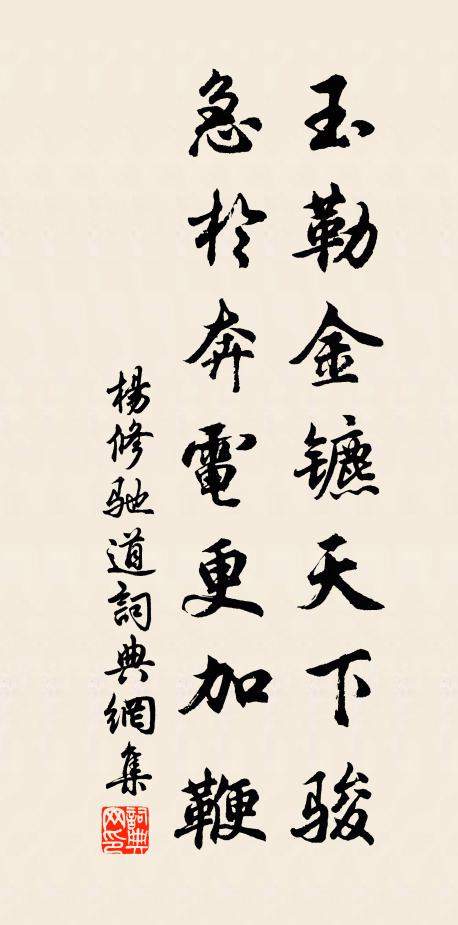 玉勒金镳天下骏
急於奔電更加鞭
楊修驰道詞典網集
詞典网印